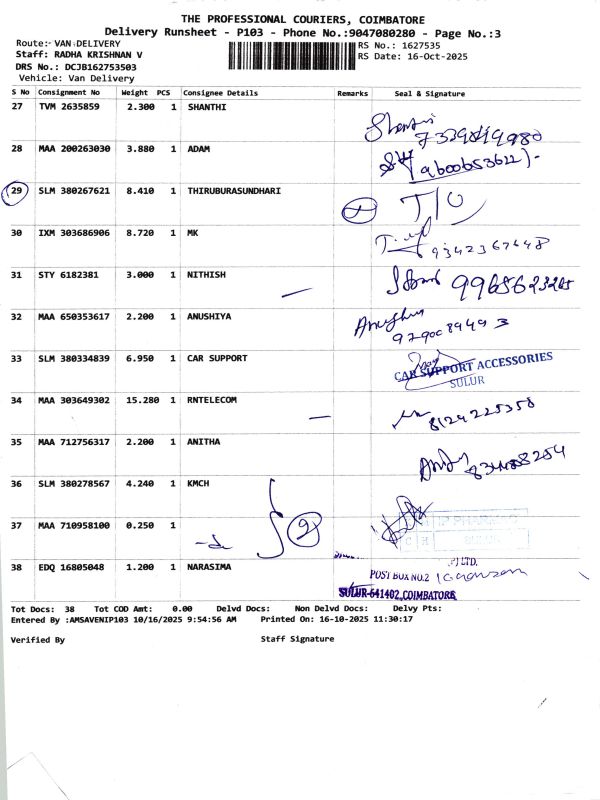 THE PROFESSIONAL COURIERS, COIMBATORE
Delivery Runsheet - P103 - Phone No.:9047080280 - Page No.:3
Route:- VAN DELIVERY
RS No.: 1627535
Staff: RADHA KRISHNAN V
RS Date: 16-Oct-2025
DRS No.: DCJB162753503
Vehicle: Van Delivery
S No Consignment No Weight PCS Consignee Details Remarks Seal & Signature
27 TVM 2635859 2.300 1 SHANTHI
28 MAA 200263030 3.880 1 ADAM
29 SLM 380267621 8.410 1 THIRUBURASUNDHARI T/O
30 IXM 303686906 8.720 1 MK 9342367648
31 STY 6182381 3.000 1 NITHISH
32 MAA 650353617 2.200 1 ANUSHIYA Anushiya
33 SLM 380334839 6.950 1 CAR SUPPORT CAR SUPPORT ACCESSORIES
SULUR
34 MAA 303649302 15.280 1 RNTELECOM 8124225358
35 MAA 712756317 2.200 1 ANITHA
36 SLM 380278567 4.240 1 KMCH
37 MAA 710958100 0.250 1 2
SULUR
38 EDQ 16805048 1.200 1 NARASIMA
POST BOX NO.2
SULUR-641402, COIMBATORE
Tot Docs: 38 Tot COD Amt: 0.00 Delvd Docs: Non Delvd Docs: Delvy Pts:
Entered By :AMSAVENIP103 10/16/2025 9:54:56 AM Printed On: 16-10-2025 11:30:17
Verified By Staff Signature